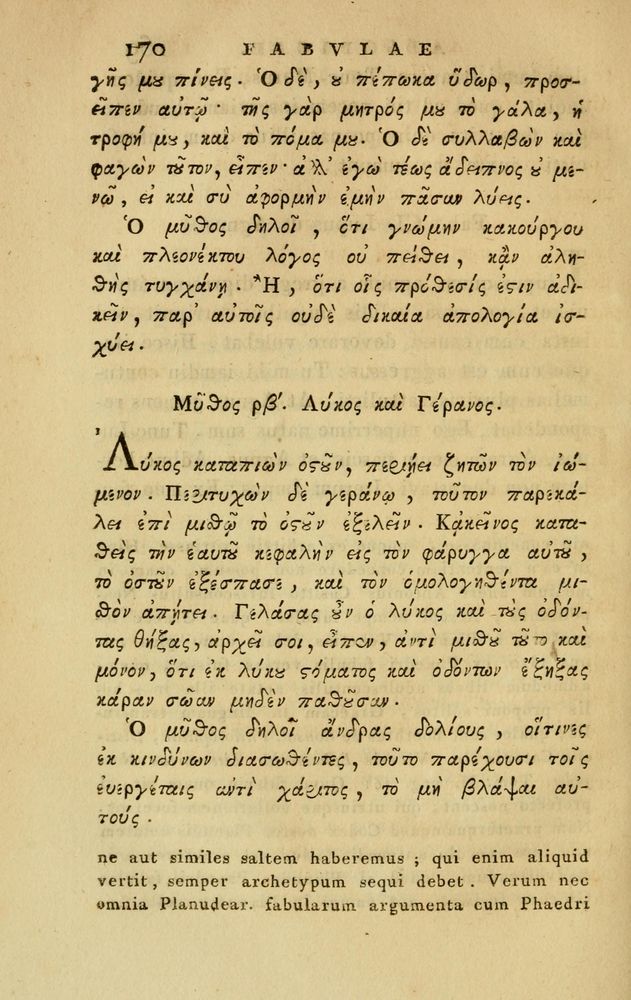 170 FABVLAE
γῆς μου πίνεις. Ὁ δὲ, οὐ πέπωκα ὕδωρ, προσ-
εῖπεν αὐτῷ· τῆς γὰρ μητρός μου τὸ γάλα, ἡ
τροφή μου, καὶ τὸ πόμα μου. Ὁ δὲ συλλαβὼν καὶ
φαγὼν τοῦτον, εἶπεν· ἀλλ' ἐγὼ τέως ἄδειπνος οὐ με-
νῶ, εἰ καὶ σὺ ἀφορμὴν ἐμὴν πᾶσαν λύεις.
Ὁ μῦθος δηλοῖ, ὅτι γνώμην κακούργου
καὶ πλεονέκτου λόγος οὐ πείθει, κᾂν ἀλη-
θὴς τυγχάνῃ. Ἢ, ὅτι οἷς πρόθεσίς ἐστιν ἀδι-
κεῖν, παρ' αὐτοῖς οὐδὲ δικαία ἀπολογία ἰσ-
χύει.
Μῦθος ρβ'. Λύκος καὶ Γέρανος.
Λύκος καταπιὼν ὀστοῦν, περιῄει ζητῶν τὸν ἰώ-
μενον. Περιτυχὼν δὲ γεράνῳ, τοῦτον παρεκά-
λει ἐπὶ μισθῷ τὸ ὀστοῦν ἐξελεῖν. Κᾀκεῖνος κατα-
θεὶς τὴν ἑαυτοῦ κεφαλὴν εἰς τὸν φάρυγγα αὐτοῦ,
τὸ ὀστοῦν ἐξέσπασε, καὶ τὸν ὁμολογηθέντα μισ-
θὸν ἀπῄτει. Γελάσας οὖν ὁ λύκος καὶ τοὺς ὀδόν-
τας θήξας, ἀρκεῖ σοι, εἶπεν, ἀντὶ μισθοῦ τοῦτο καὶ
μόνον, ὅτι ἐκ λύκου στόματος καὶ ὀδόντων ἔξηξας
κάραν σῶαν μηδὲν παθοῦσαν.
Ὁ μῦθος δηλοῖ ἄνδρας δολίους, οἵτινες
ἐκ κινδύνων διασωθέντες, τοῦτο παρέχουσι τοῖς
εὐεργέταις ἀντὶ χάριτος, τὸ μὴ βλάψαι αὐ-
τούς.
ne aut similes saltem haberemus; qui enim aliquid
vertit, semper archetypum sequi debet. Verum nec
omnia Planudear. fabularum argumenta cum Phaedri